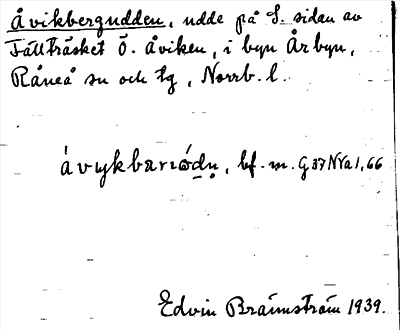 Åvikbergudden, udde på S. sidan av
Fällträsket Ö. Åviken, i byn Årbyn,
Råneå sn och tg, Norrb. l.
bf. m. G 37 NYa 1, 66
Edvin Brännström 1939.